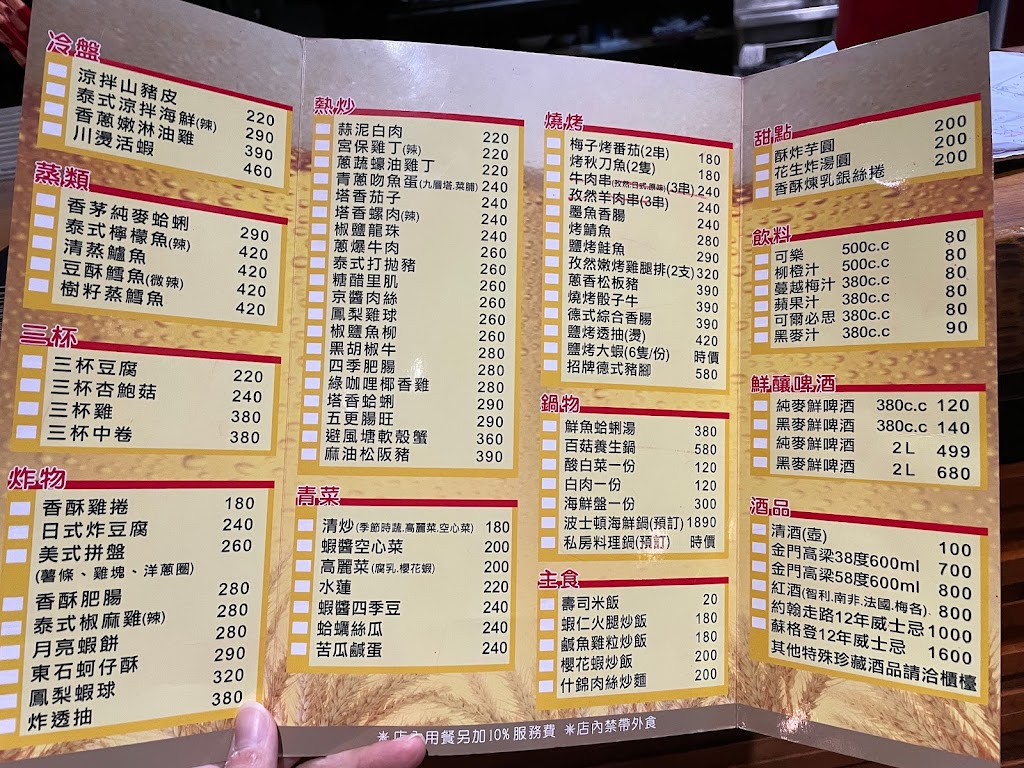 冷盤
涼拌山豬皮 220
泰式涼拌海鮮(辣) 290
香蔥嫩淋油雞 390
川燙活蝦 460
蒸類
香茅純麥蛤蜊 290
泰式檸檬魚(辣) 420
清蒸鱸魚 420
豆酥鱈魚(微辣) 420
樹籽蒸鱈魚 420
三杯
三杯豆腐 220
三杯杏鮑菇 240
三杯雞 380
三杯中卷 380
炸物
香酥雞捲 180
日式炸豆腐 240
美式拼盤 260
(薯條、雞塊、洋蔥圈)
香酥肥腸 280
泰式椒麻雞(辣) 280
月亮蝦餅 280
東石蚵仔酥 290
鳳梨蝦球 320
炸透抽 380
熱炒
蒜泥白肉 220
宮保雞丁(辣) 220
蔥蔬蠔油雞丁 220
青蔥吻魚蛋(九層塔.菜脯) 240
塔香茄子 240
塔香螺肉(辣) 240
椒鹽龍珠 240
蔥爆牛肉 260
泰式打拋豬 260
糖醋里肌 260
京醬肉絲 260
鳳梨雞球 260
椒鹽魚柳 260
黑胡椒牛 280
四季肥腸 280
綠咖哩椰香雞 280
塔香蛤蜊 290
五更腸旺 290
避風塘軟殼蟹 360
麻油松阪豬 390
青菜
清炒(季節時蔬.高麗菜.空心菜) 180
蝦醬空心菜 200
高麗菜(腐乳.櫻花蝦) 200
水蓮 220
蝦醬四季豆 240
蛤蠣絲瓜 240
苦瓜鹹蛋 240
燒烤
梅子烤番茄(2串) 180
烤秋刀魚(2隻) 180
牛肉串(孜然.日式.原味)(3串) 240
孜然羊肉串(3串) 240
墨魚香腸 240
烤鯖魚 280
鹽烤鮭魚 290
孜然嫩烤雞腿排(2支) 320
蔥香松板豬 390
燒烤骰子牛 390
德式綜合香腸 390
鹽烤透抽(燙) 420
鹽烤大蝦(6隻/份) 時價
招牌德式豬腳 580
鍋物
鮮魚蛤蜊湯 380
百菇養生鍋 580
酸白菜一份 120
白肉一份 120
海鮮盤一份 300
波士頓海鮮鍋(預訂) 1890
私房料理鍋(預訂) 時價
主食
壽司米飯 20
蝦仁火腿炒飯 180
鹹魚雞粒炒飯 180
櫻花蝦炒飯 200
什錦肉絲炒麵 200
甜點
酥炸芋圓 200
花生炸湯圓 200
香酥煉乳銀絲捲 200
飲料
可樂 500c.c 80
柳橙汁 500c.c 80
蔓越梅汁 380c.c 80
蘋果汁 380c.c 80
可爾必思 380c.c 80
黑麥汁 380c.c 90
鮮釀啤酒
純麥鮮啤酒 380c.c 120
黑麥鮮啤酒 380c.c 140
純麥鮮啤酒 2L 499
黑麥鮮啤酒 2L 680
酒品
清酒(壺) 100
金門高梁38度600ml 700
金門高梁58度600ml 800
紅酒(智利.南非.法國.梅各). 800
約翰走路12年威士忌 1000
蘇格登12年威士忌 1600
其他特殊珍藏酒品請洽櫃檯
＊店內用餐另加10%服務費 ＊店內禁帶外食